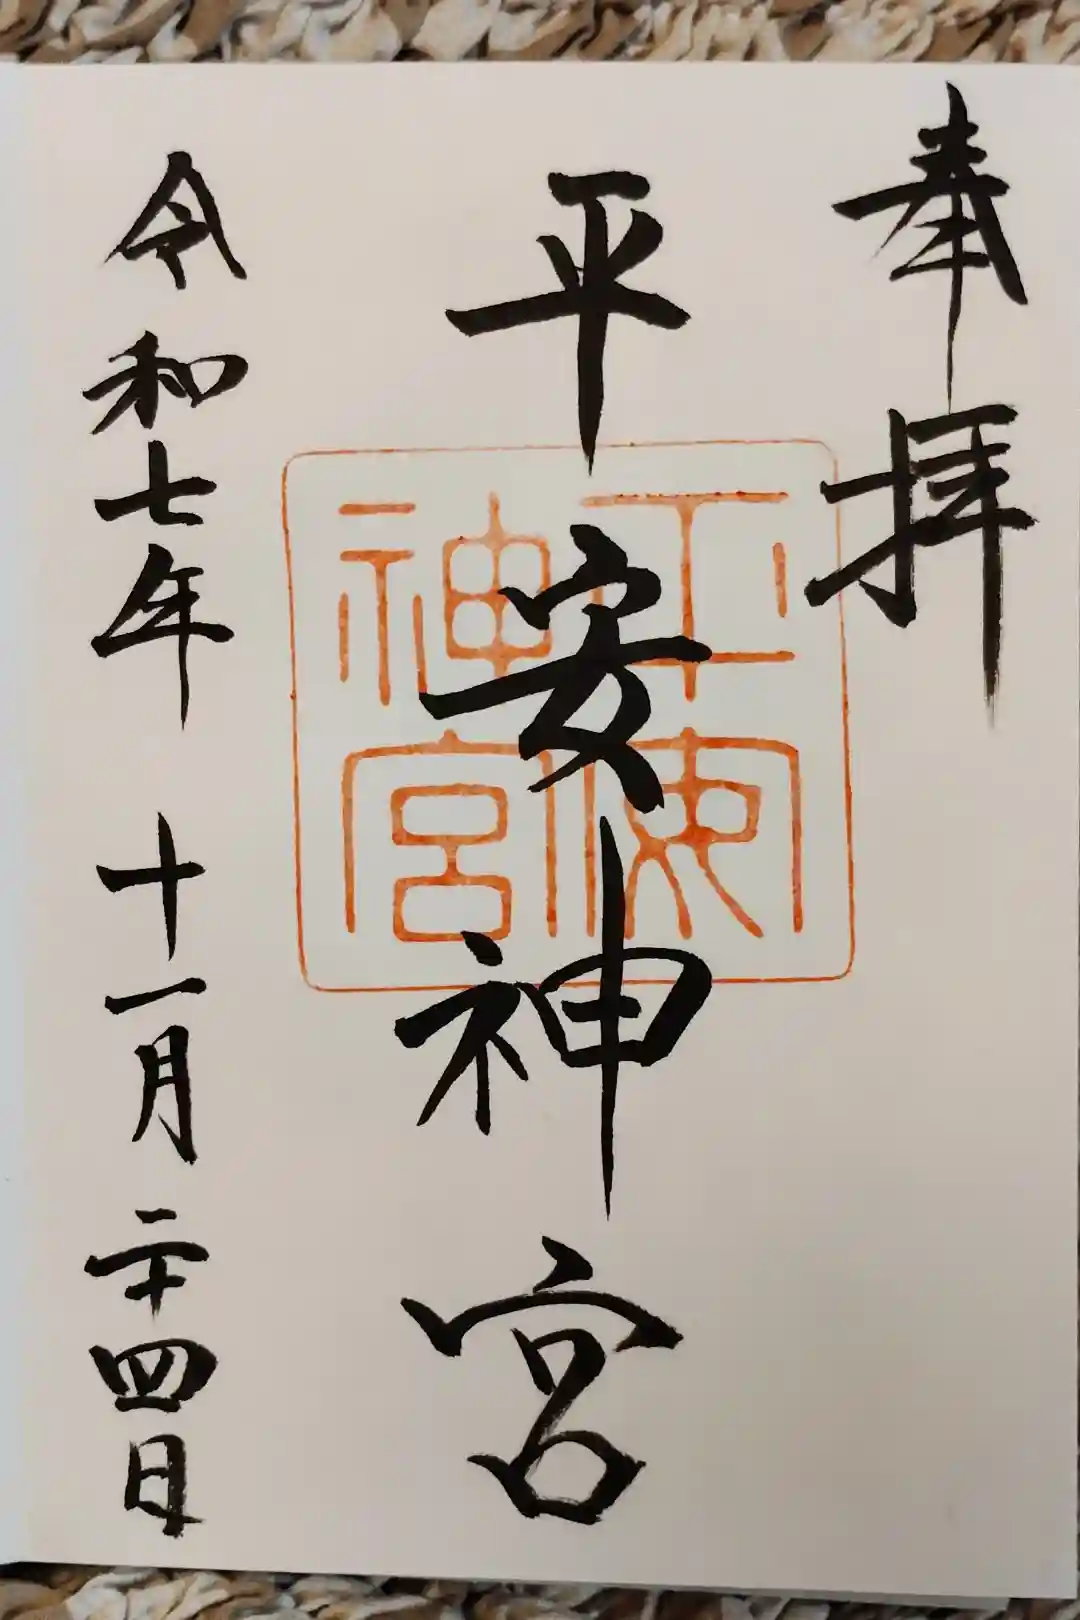 奉拝
平安神宮
平安神宮
令和七年 十一月 二十四日